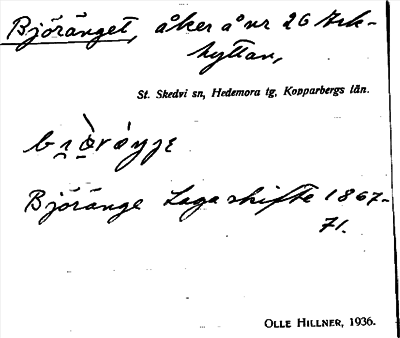 Björänget, åker å nr 26 Ark-
hyttan,
St. Skedvi sn, Hedemora tg, Kopparbergs län.
Björänge Laga skifte 1867-
71.
OLLE HILLNER, 1936.